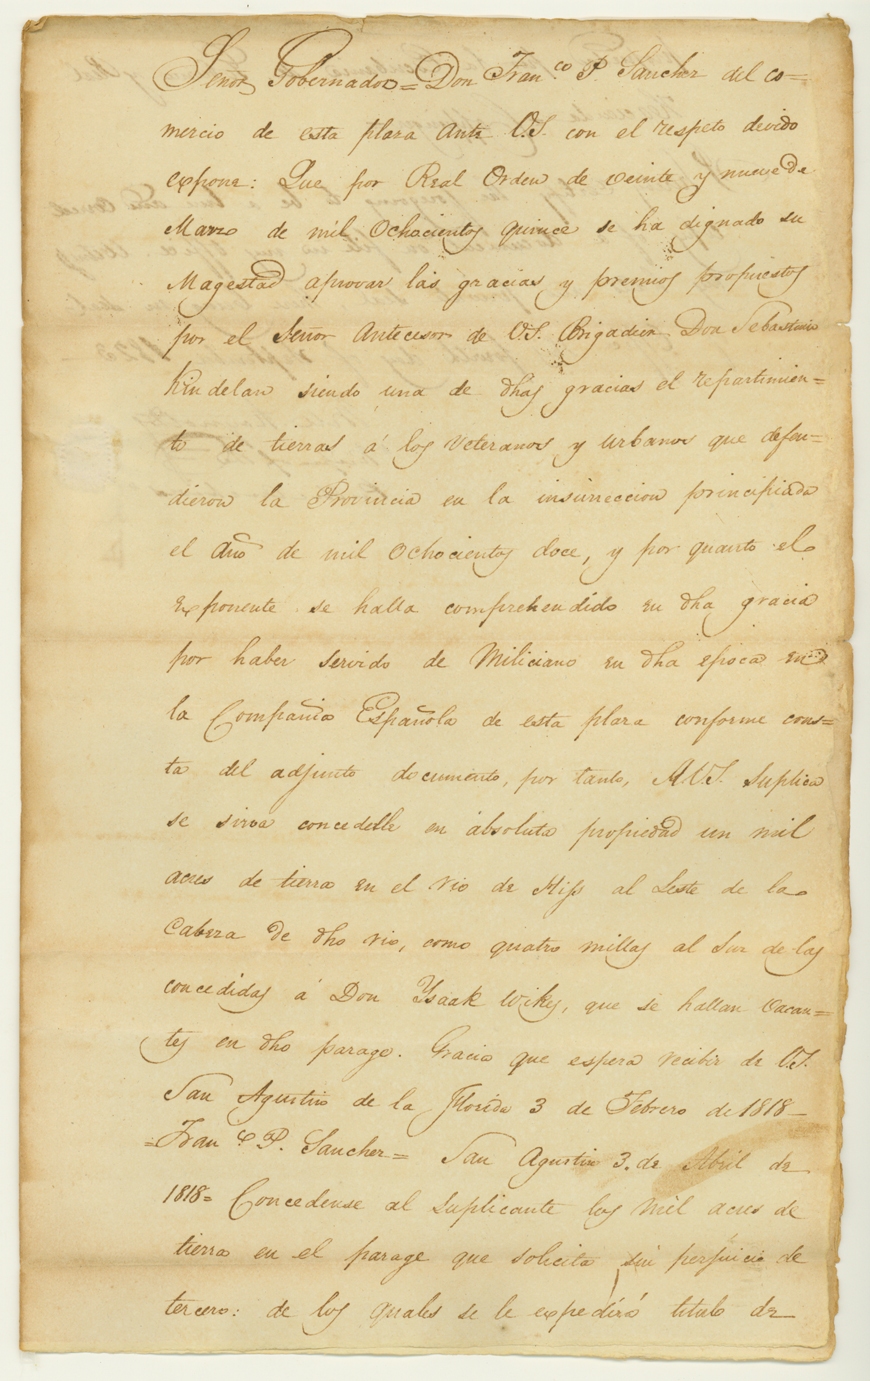 Señor Gobernador = Don Fran.co P. Sanchez del co=
mercio de esta plaza Ante V.S. con el respeto devido
expone: Que por Real Orden de veinte y nueve de
Marzo de mil ochocientos quince se ha dignado su
Magestad aprovar las gracias y premios propuestos
por el Señor Antecesor de V.S. Brigadier Don Sebastian
Kindelan siendo una de dhas gracias el repartimien=
to de tierras á los veteranos y urbanos que defen=
dieron la Provincia en la insurreccion principiada
el Año de mil ochocientos doce, y por quanto el
exponente se halla comprehendido en dha gracia
por haber servido de Miliciano en dha epoca en
la Compañia Española de esta plaza conforme cons=
ta del adjunto documento, por tanto, A.V.S. suplica
se sirva concedelle en absoluta propiedad un mil
acres de tierra en el rio de Hijs al Leste de la
Cabeza de dho rio, como quatro millas al Sur de las
concedidas á Don Ysaak Wikes, que se hallan vacan=
tes en dho parage. Gracia que espera recibir de V.S.
San Agustin de la Florida 3 de Febrero de 1818 –
= Fran.co P. Sanchez = San Agustin 3. de Abril de
1818 = Concedense al suplicante los mil acres de
tierra en el parage que solicita sin perjuicio de
tercero: de los quales se le expedirá titulo de